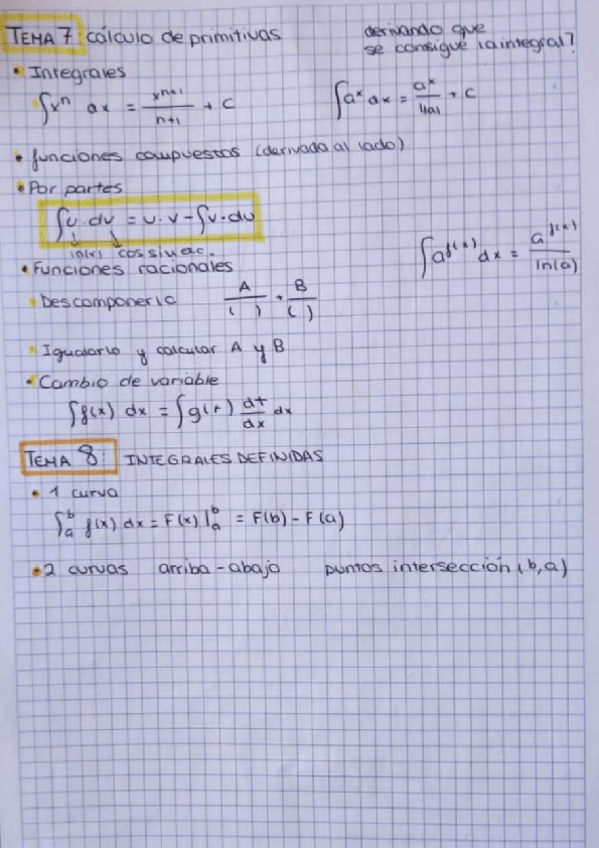 TEMA 7: cálculo de primitivas
derivando que
se consigue la integral?
• Integrales
∫xⁿ dx = xⁿ⁺¹/n+1 + C
∫aˣ dx = aˣ/|a| + C
• funciones compuestos (derivada al lado)
• Por partes
∫u · dv = u · v - ∫v · du
ln(x) cos sin etc.
∫a^f(x) dx = a^f(x)/ln(a)
• Funciones racionales
• Descomponerlo A/( ) + B/( )
• Igualarlo y calcular A y B
• Cambio de variable
∫f(x) dx = ∫g(t) dt/dx dx
TEMA 8: INTEGRALES DEFINIDAS
• 1 curva
∫ₐᵇ f(x) dx = F(x) |ₐᵇ = F(b) - F(a)
• 2 curvas arriba - abajo puntos intersección (b,a)